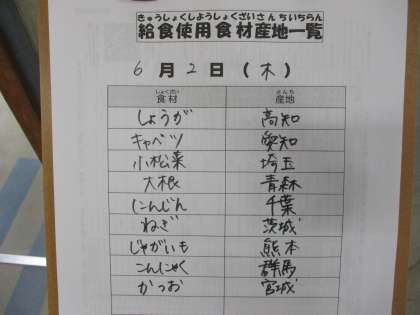 きゅうしょくしようしょくざいさんちいちらん
給食使用食材産地一覧
6月2日(木)
しょくざい さんち
食材 産地
しょうが 高知
キャベツ 愛知
小松菜 埼玉
大根 青森
にんじん 千葉
ねぎ 茨城
じゃがいも 熊本
こんにゃく 群馬
かつお 宮城